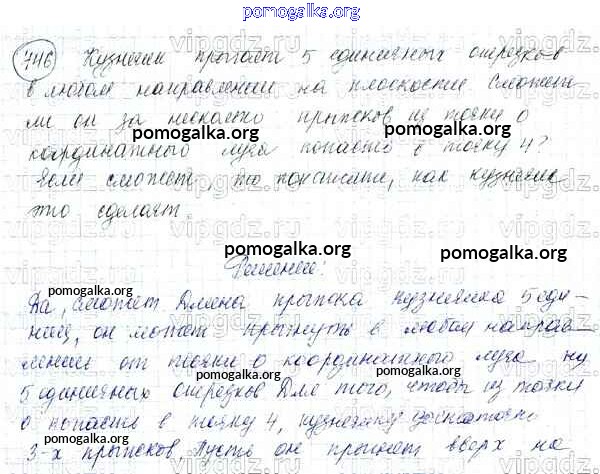 pomogalka.org
746 Кузнечик прыгает 5 единичных отрезков
в любом направлении на плоскости. Сможет
ли он за несколько прыжков из точки 0
pomogalka.org pomogalka.org
координатного луча попасть в точку 4?
Если сможет, то покажите, как кузнечик
это сделает.
pomogalka.org pomogalka.org
Решение:
pomogalka.org
Да, сможет. Длина прыжка кузнечика 5 еди-
ниц, он может прыгнуть в любом направ-
pomogalka.org
лении от точки 0 координатного луча на
pomogalka.org
5 единичных отрезков. Для того, чтобы из точки
0 попасть в точку 4, кузнечику достаточно
pomogalka.org
3-х прыжков. Пусть он прыгнет вверх на
pomogalka.org